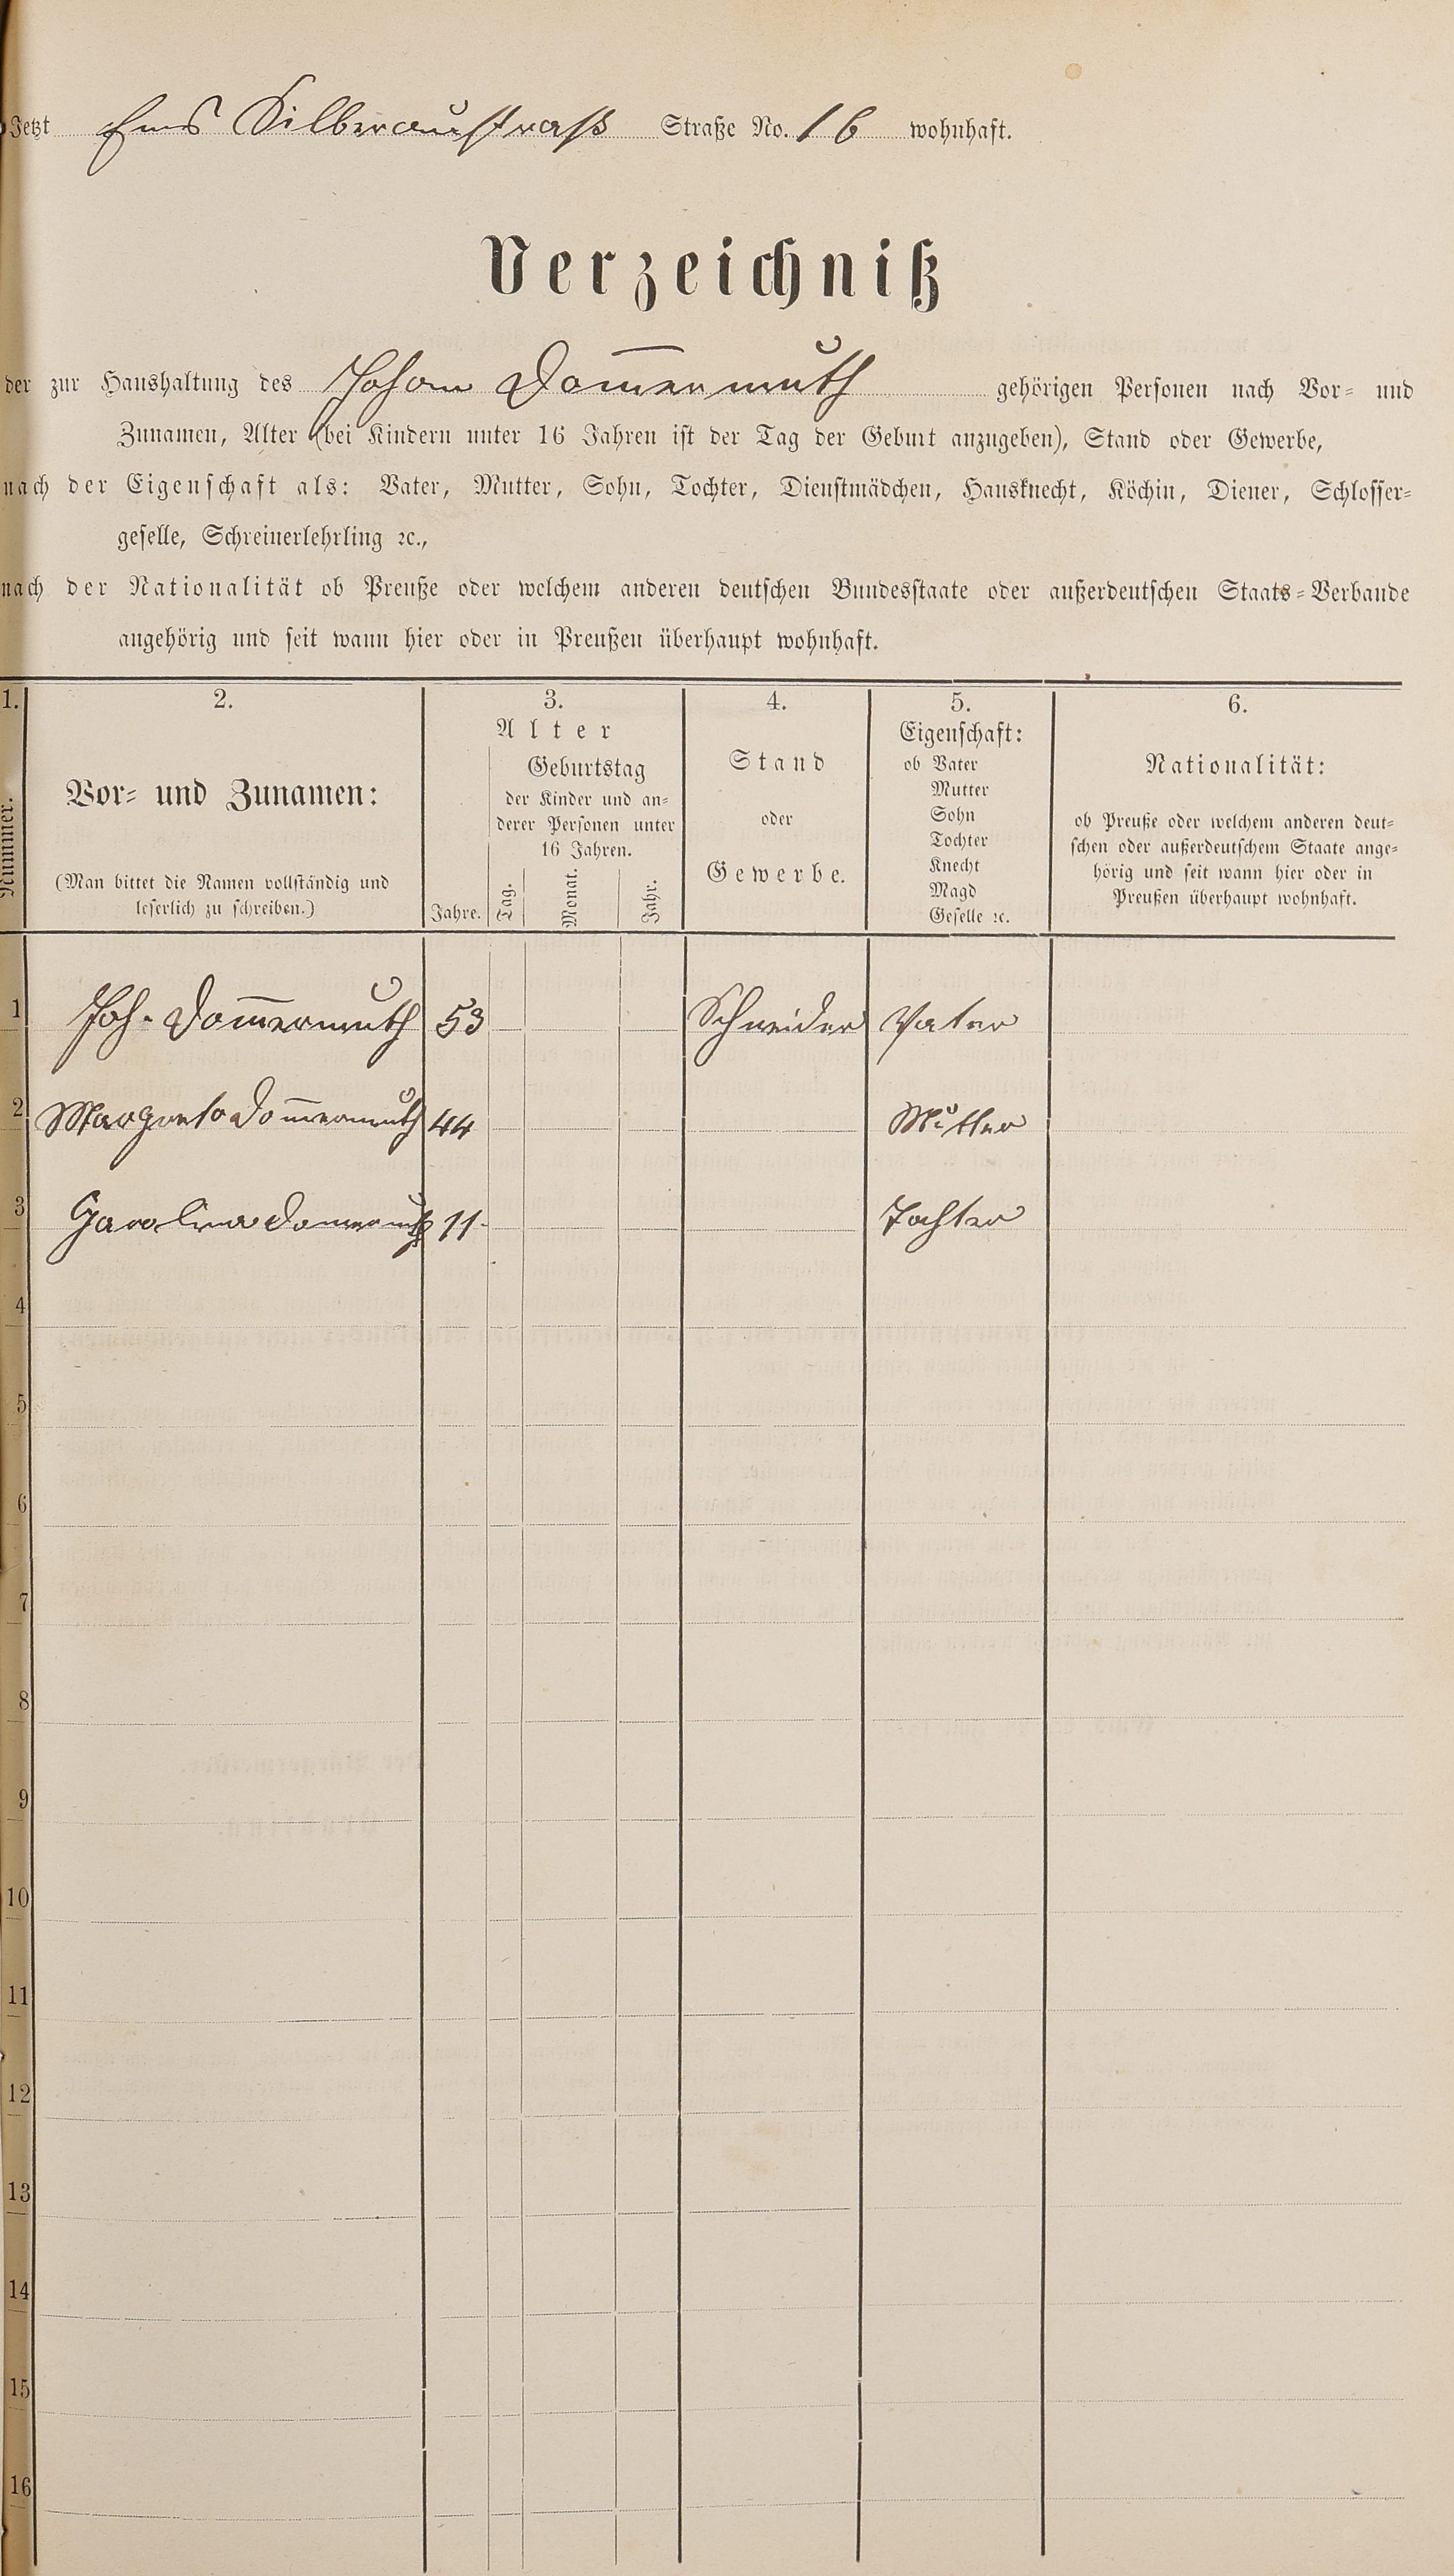 Jetzt Ems Silberaustraß Straße No. 16 wohnhaft.
Verzeichniß
der zur Haushaltung des Johann Dommermuth gehörigen Personen nach Vor- und
Zunamen, Alter (bei Kindern unter 16 Jahren ist der Tag der Geburt anzugeben), Stand oder Gewerbe,
nach der Eigenschaft als: Vater, Mutter, Sohn, Tochter, Dienstmädchen, Hausknecht, Köchin, Diener, Schlosser-
geselle, Schreinerlehrling ꝛc.,
nach der Nationalität ob Preuße oder welchem anderen deutschen Bundesstaate oder außerdeutschen Staats-Verbande
angehörig und seit wann hier oder in Preußen überhaupt wohnhaft.
1. 2. 3. 4. 5. 6.
Nummer.
Vor- und Zunamen:
(Man bittet die Namen vollständig und
leserlich zu schreiben.)
Alter
Jahre.
Geburtstag
der Kinder und an-
derer Personen unter
16 Jahren.
Tag. Monat. Jahr.
Stand
oder
Gewerbe.
Eigenschaft:
ob Vater
Mutter
Sohn
Tochter
Knecht
Magd
Geselle ꝛc.
Nationalität:
ob Preuße oder welchem anderen deut-
schen oder außerdeutschem Staate ange-
hörig und seit wann hier oder in
Preußen überhaupt wohnhaft.
1 Joh. Dommermuth 53 Schneider Vater
2 Margreta Dommermuth 44 Mutter
3 Carolina Domermuth 11 Tochter
4
5
6
7
8
9
10
11
12
13
14
15
16